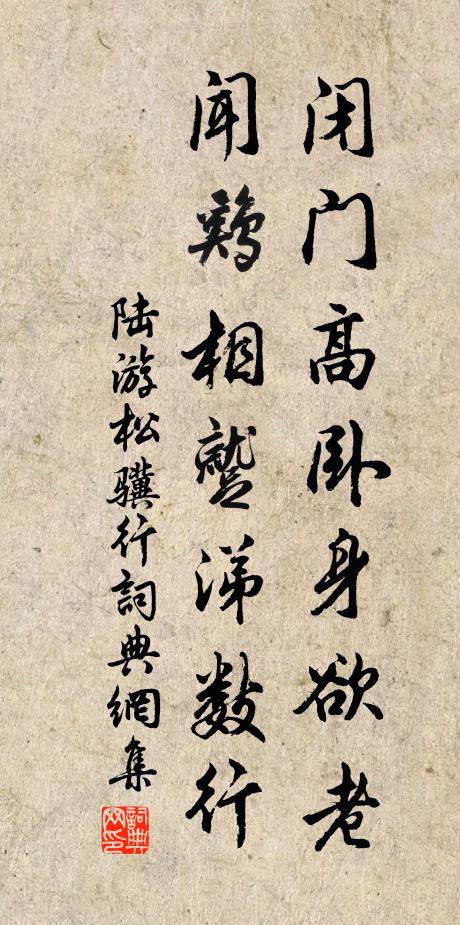 闭门高卧身欲老
闻鸡相蹴涕数行
陆游松骥行詞典網集
詞典网印